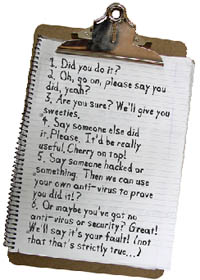 1. Did you do it?
2. Oh, go on, please say you
did, yeah?
3. Are you sure? We'll give you
sweeties.
4. Say someone else did
it. Please. It'd be really
useful. Cherry on top!
5. Say someone hacked or
something. Then we can use
your own anti-virus to prove
you did it!?
6. Or maybe you've got no
anti-virus or security? Great!
We'll say it's your fault! (not
that that's strictly true...)